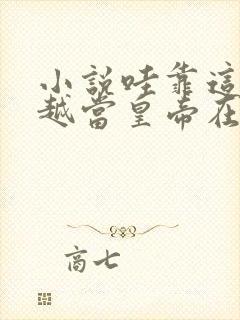 小說哇靠這
越當皇帝在
商七